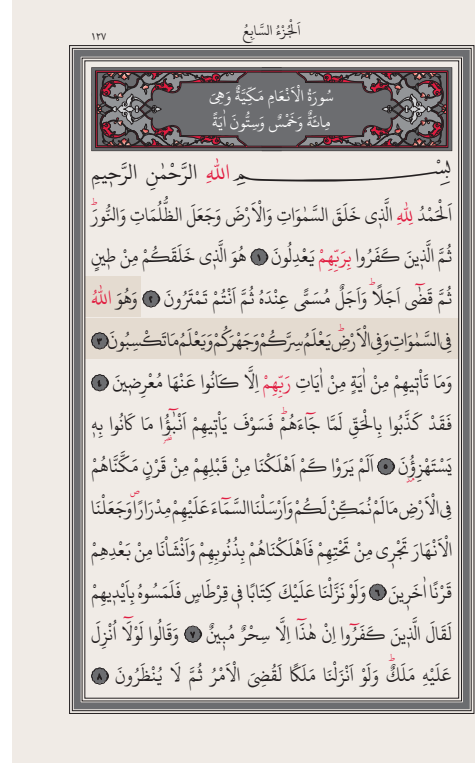 ١٢٧
اَلْجُزْءُ السَّابِعُ
سُورَةُ الْاَنْعَامِ مَكِّيَّةٌ وَهِىَ
مِائَةٌ وَخَمْسٌ وَسِتُّونَ اٰيَةً
بِسْمِ اللّٰهِ الرَّحْمٰنِ الرَّح۪يمِ
اَلْحَمْدُ لِلّٰهِ الَّذ۪ى خَلَقَ السَّمٰوَاتِ وَالْاَرْضَ وَجَعَلَ الظُّلُمَاتِ وَالنُّورَۜ
ثُمَّ الَّذ۪ينَ كَفَرُوا بِرَبِّهِمْ يَعْدِلُونَ ﴿١﴾ هُوَ الَّذ۪ى خَلَقَكُمْ مِنْ ط۪ينٍ
ثُمَّ قَضٰٓى اَجَلًاۜ وَاَجَلٌ مُسَمًّى عِنْدَهُ ثُمَّ اَنْتُمْ تَمْتَرُونَ ﴿٢﴾ وَهُوَ اللّٰهُ
فِى السَّمٰوَاتِ وَفِى الْاَرْضِۜ يَعْلَمُ سِرَّكُمْ وَجَهْرَكُمْ وَيَعْلَمُ مَا تَكْسِبُونَ ﴿٣﴾
وَمَا تَأْت۪يهِمْ مِنْ اٰيَةٍ مِنْ اٰيَاتِ رَبِّهِمْ اِلَّا كَانُوا عَنْهَا مُعْرِض۪ينَ ﴿٤﴾
فَقَدْ كَذَّبُوا بِالْحَقِّ لَمَّا جَٓاءَهُمْۜ فَسَوْفَ يَأْت۪يهِمْ اَنْبٰٓؤُ۬ا مَا كَانُوا بِه۪
يَسْتَهْزِؤُ۫نَ ﴿٥﴾ اَلَمْ يَرَوْا كَمْ اَهْلَكْنَا مِنْ قَبْلِهِمْ مِنْ قَرْنٍ مَكَّنَّاهُمْ
فِى الْاَرْضِ مَا لَمْ نُمَكِّنْ لَكُمْ وَاَرْسَلْنَا السَّمَٓاءَ عَلَيْهِمْ مِدْرَارًاۖ وَجَعَلْنَا
الْاَنْهَارَ تَجْر۪ى مِنْ تَحْتِهِمْ فَاَهْلَكْنَاهُمْ بِذُنُوبِهِمْ وَاَنْشَأْنَا مِنْ بَعْدِهِمْ
قَرْنًا اٰخَر۪ينَ ﴿٦﴾ وَلَوْ نَزَّلْنَا عَلَيْكَ كِتَابًا ف۪ى قِرْطَاسٍ فَلَمَسُوهُ بِاَيْد۪يهِمْ
لَقَالَ الَّذ۪ينَ كَفَرُٓوا اِنْ هٰذَٓا اِلَّا سِحْرٌ مُب۪ينٌ ﴿٧﴾ وَقَالُوا لَوْلَٓا اُنْزِلَ
عَلَيْهِ مَلَكٌۜ وَلَوْ اَنْزَلْنَا مَلَكًا لَقُضِىَ الْاَمْرُ ثُمَّ لَا يُنْظَرُونَ ﴿٨﴾